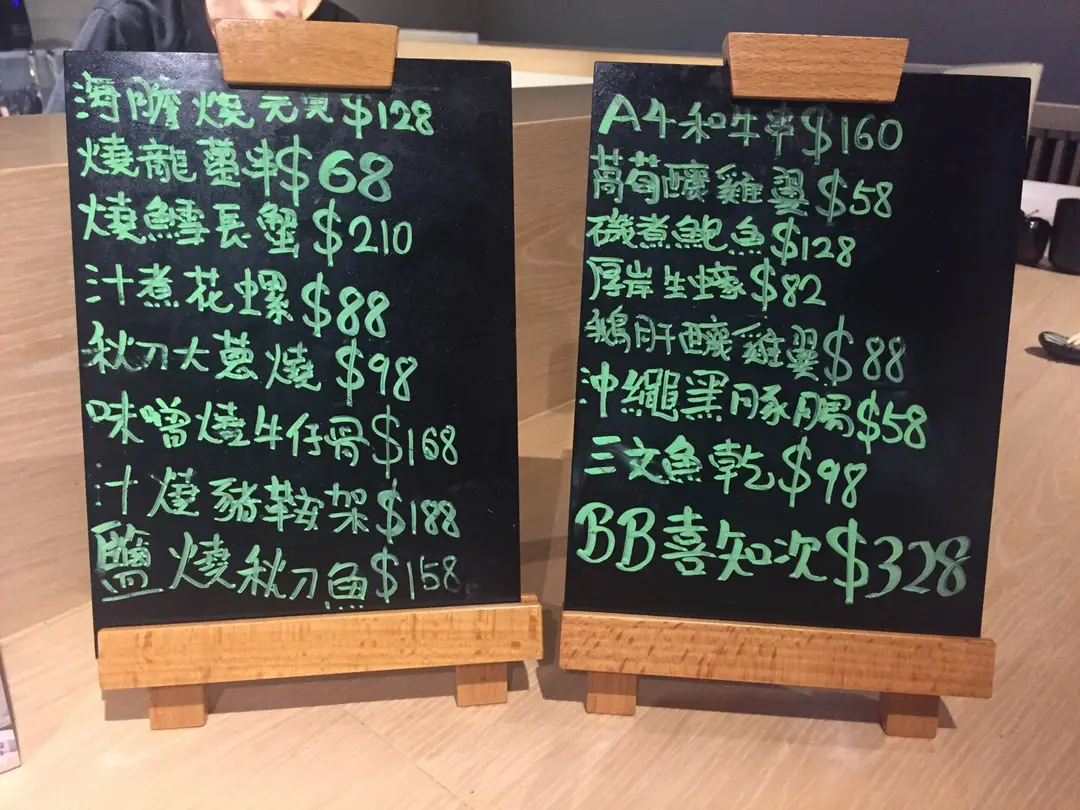 海膽燒元貝$128
燒龍薑串$68
燒鱈長蟹$210
汁煮花螺$88
秋刀大蔥燒$98
味噌燒牛仔骨$168
汁燒豬鞍架$188
鹽燒秋刀魚$158
A4和牛串$160
萵苣釀雞翼$58
磯煮鮑魚$128
厚岸生蠔$82
鵝肝釀雞翼$88
沖繩黑豚腸$58
三文魚乾$98
BB喜知次$328